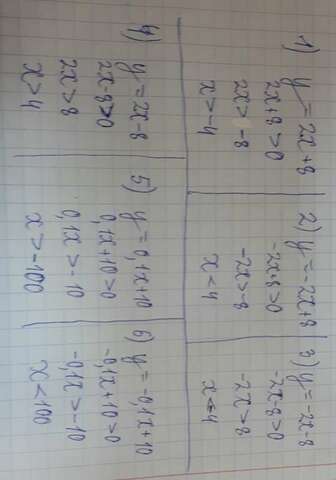 1) y = 2x + 8
2x + 8 > 0
2x > -8
x > -4
2) y = -2x + 8
-2x + 8 > 0
-2x > -8
x < 4
3) y = -2x - 8
-2x - 8 > 0
-2x > 8
x < -4
4) y = 2x - 8
2x - 8 > 0
2x > 8
x > 4
5) y = 0,1x + 10
0,1x + 10 > 0
0,1x > -10
x > -100
6) y = -0,1x + 10
-0,1x + 10 > 0
-0,1x > -10
x < 100